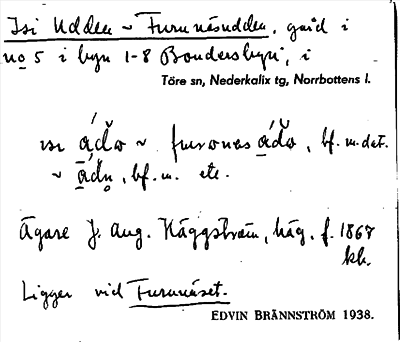 Isi Udden ~ Furunäsudden, gård i
no 5 i byn 1-8 Bondersbyn, i
Töre sn, Nederkalix tg, Norrbottens l.
~ bf. m. det.
~ bf. m. etc.
Ägare J. Aug. Häggström, häg. f. 1867
kh.
Ligger vid Furunäset.
EDVIN BRÄNNSTRÖM 1938.